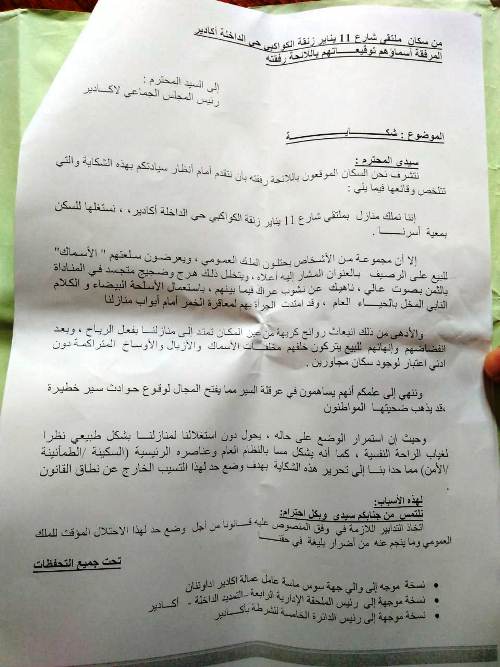 من سكان ملتقى شارع 11 يناير زنقة الكواكبي حي الداخلة أكادير
المرفقة أسماؤهم توقيعاتهم باللائحة رفقته
إلى السيد المحترم :
رئيس المجلس الجماعي لاكادير
الموضوع : شكاية
سيدي المحترم :
نتشرف نحن السكان الموقعون باللائحة رفقته بان نتقدم أمام أنظار سيادتكم بهذه الشكاية والتي
تتلخص وقائعها فيما يلي :
إننا نملك منازل بملتقى شارع 11 يناير زنقة الكواكبي حي الداخلة أكادير، ، نستغلها للسكن
بمعية أسرنا .
إلا أن مجموعة من الأشخاص يحتلون الملك العمومي ، ويعرضون سلعتهم " الأسماك"
للبيع على الرصيف بالعنوان المشار إليه أعلاه ، ويتخلل ذلك هرج وضجيج متجسد في المناداة
بالثمن بصوت عالي ، ناهيك عن نشوب عراك فيما بينهم ، باستعمال الأسلحة البيضاء و الكلام
النابي المخل بالحياء العام ، وقد امتدت الجرأة بهم لمعاقرة الخمر أمام أبواب منازلنا
والأدهى من ذلك انبعاث روائح كريهة من عين المكان تمتد إلى منازلنا بفعل الرياح ، وبعد
انفضاضهم وإنهائهم للبيع يتركون خلفهم مخلفات الأسماك والأزبال والأوساخ المتراكمة دون
ادنى اعتبار لوجود سكان مجاورين .
وننهي إلى علمكم أنهم يساهمون في عرقلة السير مما يفتح المجال لوقوع حوادث سير خطيرة
،قد يذهب ضحيتها المواطنون
وحيث إن استمرار الوضع على حاله ، يحول دون استغلالنا لمنازلنا بشكل طبيعي نظرا
لغياب الراحة النفسية ، كما أنه يشكل مسا بالنظام العام وعناصره الرئيسية (السكينة /الطمأنينة
/الأمن) مما حدا بنا إلى تحرير هذه الشكاية بهدف وضع حد لهذا التسيب الخارج عن نطاق القانون
.
لهذه الأسباب:
نلتمس من جنابكم سيدي وبكل احترام:
اتخاذ التدابير اللازمة في وفق المنصوص عليه قانونا من أجل وضع حد لهذا الاحتلال المؤقت للملك
العمومي وما ينجم عنه من أضرار بليغة في حقنا
تحت جميع التحفظات
• نسخة موجه إلى والي جهة سوس ماسة عامل عمالة اكادير اداوتنان
• نسخة موجهة إلى رئيس الملحقة الإدارية الرابعة -التمديد الداخلة - أكادير
• نسخة موجهة إلى رئيس الدائرة الخامسة للشرطة بأكادير